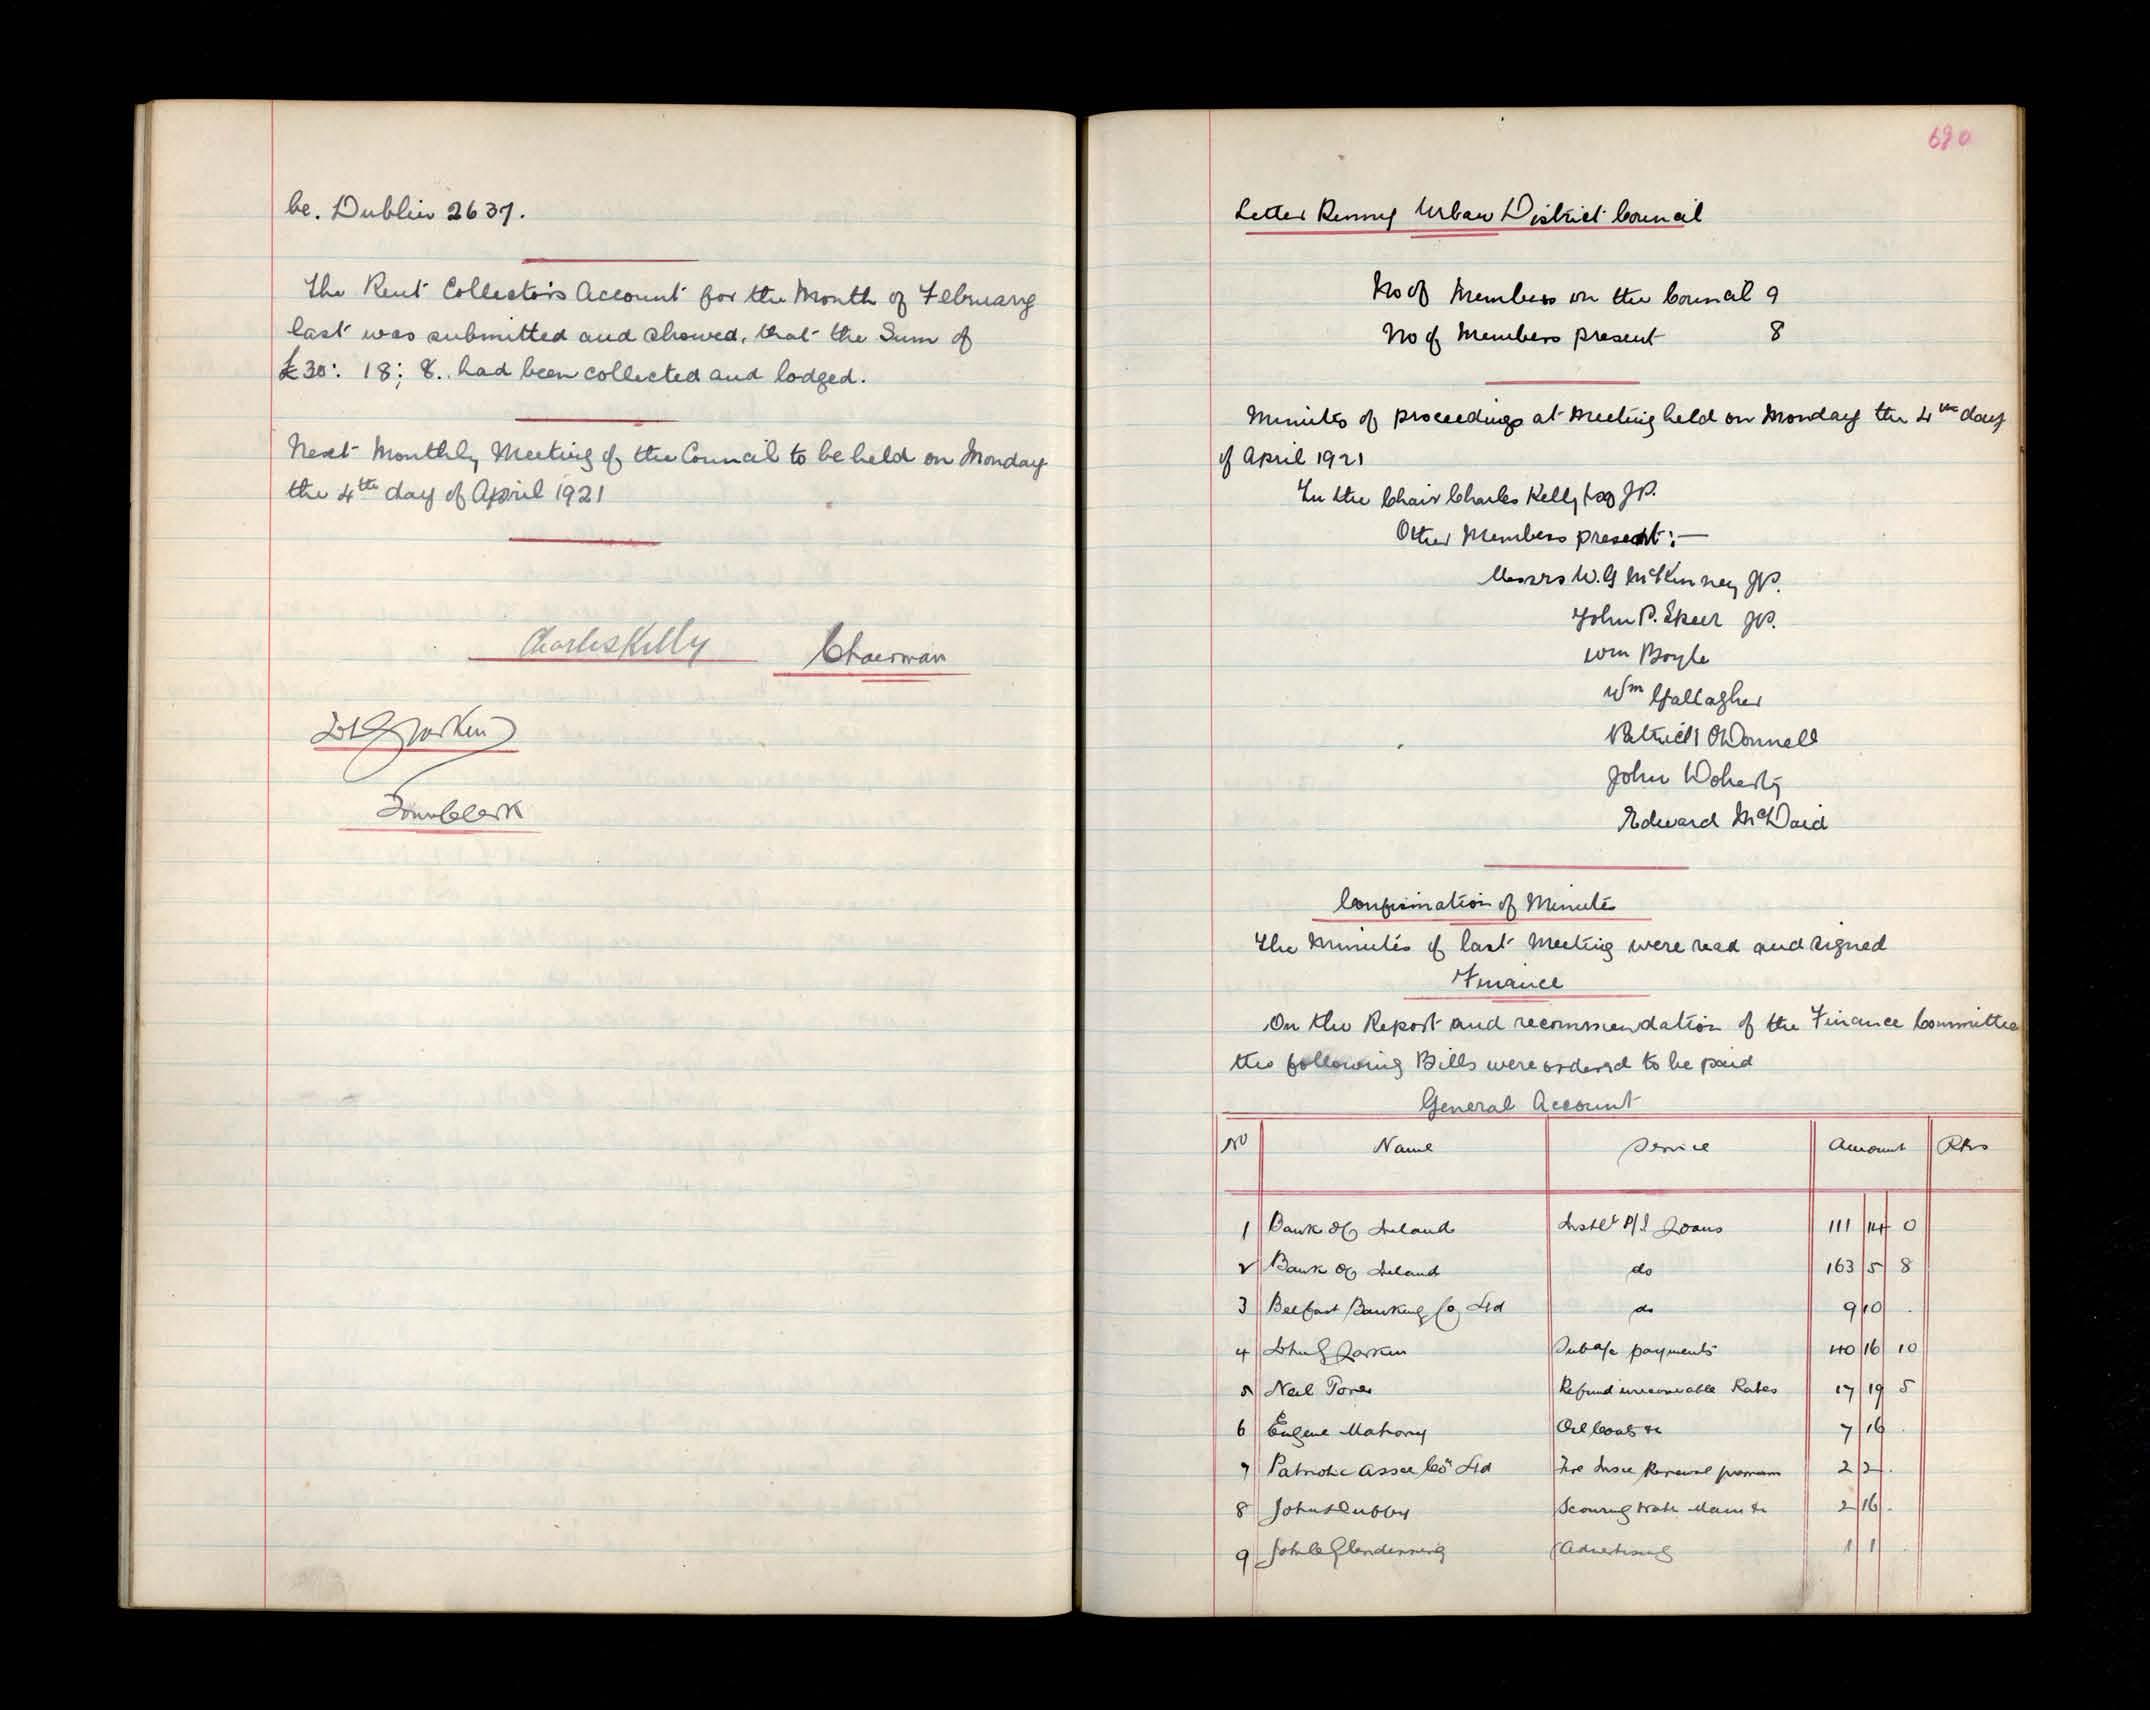 be. Dublin 2637.
The Rent Collector's Account for the Month of February
last was submitted and showed, that the Sum of
£30: 18: 8.. had been collected and lodged.
Next Monthly Meeting of the Council to be held on Monday
the 4th day of April 1921
Charles Kelly Chairman
Larkin
Town Clerk
690
Letter Kenny Urban District Council
No of Members on the Council 9
No of Members present 8
Minutes of proceedings at Meeting held on Monday the 4th day
of April 1921
In the Chair Charles Kelly Esq J.P.
Other Members present:—
Messrs W.G McKinney J.P.
John P. Speer J.P.
Wm Boyle
Wm Gallagher
Patrick O'Donnell
John Doherty
Edward McDaid
Confirmation of Minutes
The Minutes of last Meeting were read and signed
Finance
On the Report and recommendation of the Finance Committee
the following Bills were ordered to be paid
General Account
No Name Service Amount
1 Bank of Ireland Loans 111 14 0
2 Bank of Ireland do 163 5 8
3 Belfast Banking Co Ltd do 9 10 .
4 Larkin payments 40 16 10
5 Neil Refund irrecoverable Rates 17 19 5
6 Eugene Mahony Oil Coals &c 7 16 .
7 Patriotic Assce Coy Ltd Fire Insce Renewal premium 2 2 .
8 John Scouring Main &c 2 16 .
9 John C Glendinning Advertising 1 1 .